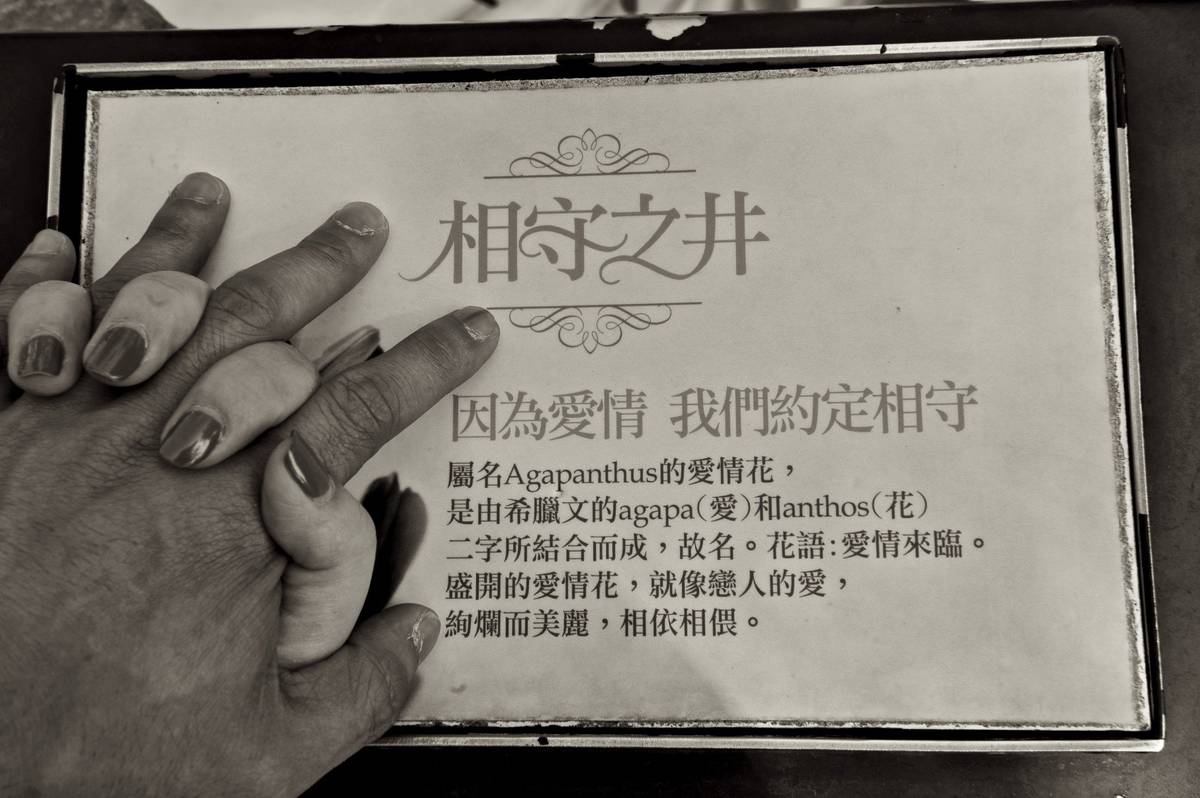 相守之井
因為愛情 我們約定相守
屬名Agapanthus的愛情花，
是由希臘文的agapa(愛)和anthos(花)
二字所結合而成，故名。花語:愛情來臨。
盛開的愛情花，就像戀人的愛，
絢爛而美麗，相依相偎。